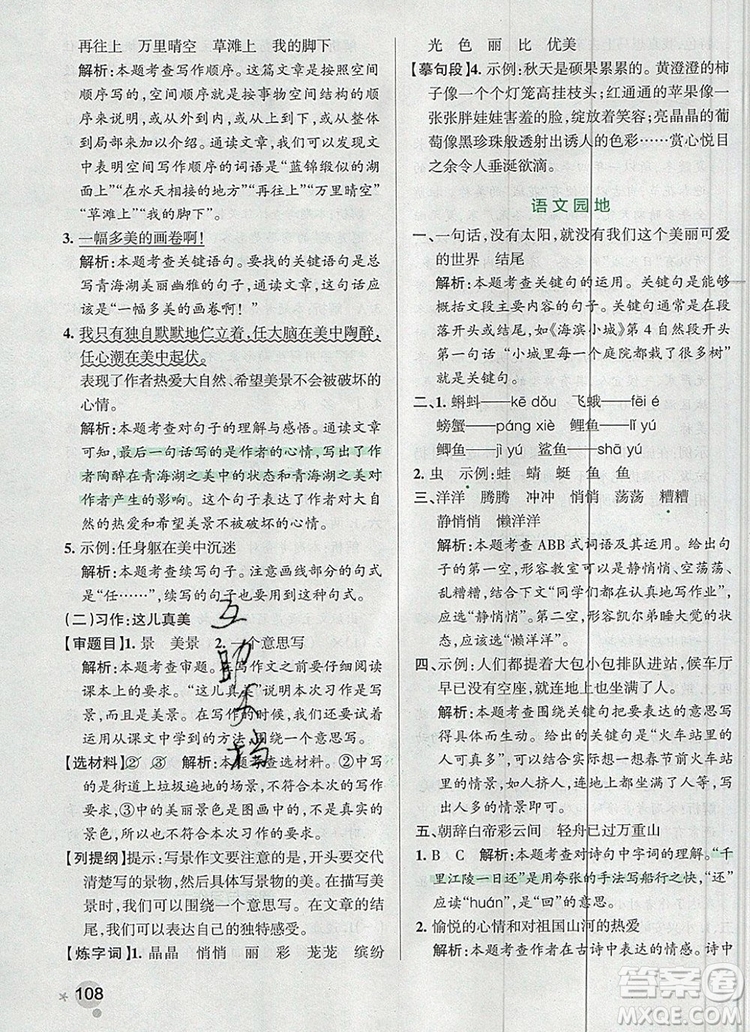 再往上　万里晴空　草滩上　我的脚下
解析:本题考查写作顺序。这篇文章是按空间
顺序写的,空间顺序就是按事物空间结构的顺
序,或从外到内,或从上到下,或从整体到局部
来加以介绍。通读文章,可以发现文
中表明空间写作顺序的词语是“蓝锦缎似的湖
面上”“在水天相接的地方”“再往上”“万里晴空”
“草滩上”“我的脚下”。
3. 一幅多美的画卷啊!
解析:本题考查关键语句。我们要找的关键语句是总
写青海湖之美丽幽雅的句子,这句话应
该是“一幅多美的画卷啊!”
4. 我只有独自默默地伫立着,任大脑在美中陶醉,
任心潮在美中起伏。
表现了作者热爱大自然、希望美景不会被破坏的
心情。
解析:本题考查对句子的理解与感悟。通读文章
可知,最后一句话写的是作者的心情,写出了作
者陶醉在青海湖之美中的状态和青海湖之美对
作者产生的影响。这个句子表达了作者对大自
然的热爱和希望美景不被破坏的心情。
5. 示例:任身躯在美中沉迷
解析:本题考查续写句子。画线部分的句式
是“任……”,续写的句子也要用这个句式。
(二)习作:这儿真美
【审题目】1. 景　美景　2. 一个意思写
解析:本题考查审题。在写作文之前要仔细阅读
课本上的要求。“这儿真美”说明本次习作是写
景的,而且是美景。在写作的时候,要试着运用
从课文中学到的方法,围绕一个意思写。
【选材料】② ③　解析:本题考查选材料。②中写
的是街道上垃圾遍地的场景,不符合本次习作的
要求,③中的美丽景色是虚构出来的,不是真实
景色,所以不符合本次习作的要求。
【列提纲】提示:写景作文要注意的是,开头要交代
清楚所写的景物,然后具体描写。在描写美
景时,我们可以围绕一个意思写。在文章的结
尾,可以表达出自己的独特感受。
【炼字词】1. 晶晶　悄悄　丽　彩　茏茏　缤纷
108
互助文档
光　色　丽　比　优美
【摹句段】4. 示例:秋天是硕果累累的。黄澄澄的柿
子像一个个灯笼高挂枝头;红通通的苹果像一
张张胖娃娃害羞的脸,绽放着笑容;亮晶晶的葡
萄像黑珍珠般透射出诱人的色彩……赏心悦目
之余令人垂涎欲滴。
语文园地
一、一句话,没有太阳,就没有我们这个美丽可爱
的世界　结尾
解析:本题考查关键句的运用。关键句是能够
概括文段主要意思的句子。关键句通常是在段
落开头或结尾,如《海滨小城》第 4 自然段开头
第一句话“小城里每一个庭院都栽了很多树”
就是关键句。
二、1. 蝌蚪——kē dǒu　飞蛾——fēi é
螃蟹——páng xiè　鲤鱼——lǐ yú
鲫鱼——jì yú　鲨鱼——shā yú
2. 虫　示例:蛙　蜻　蜓　鱼　鱼
三、洋洋　腾腾　冲冲　悄悄　荡荡　糟糟
静悄悄　懒洋洋
解析:本题考查 ABB 式词语及其运用。给出句
子的第一空,形容教室可以用静悄悄、空荡荡、
乱糟糟,但后面写“同学们都在认真地写作业”,
应选“静悄悄”。第二空,形容加菲猫总是睡大觉,
应该选“懒洋洋”。
四、示例:人们都提着大包小包排队进站,候车厅
早已没有空座,就连地上都坐满了人。
解析:本题考查围绕关键句把要表达的意思写
清楚。这句话的关键句是“火车站里的人可真
多”,可以结合生活实际想一想春节前火车站的
情景。如人挤人、坐满了人、上火车被挤得
上不去的情景,写出来即可。
五、朝辞白帝彩云间　轻舟已过万重山
1. B　C　解析:本题考查对诗句中字词的理解。“千
里江陵一日还”是用夸张的手法写船行之快,“还”
应读“huán”,是“回”的意思。
2. 愉悦的心情和对祖国山河的热爱
解析:本题考查作者在古诗中表达的情感。诗中
答案圈
MXQE.COM